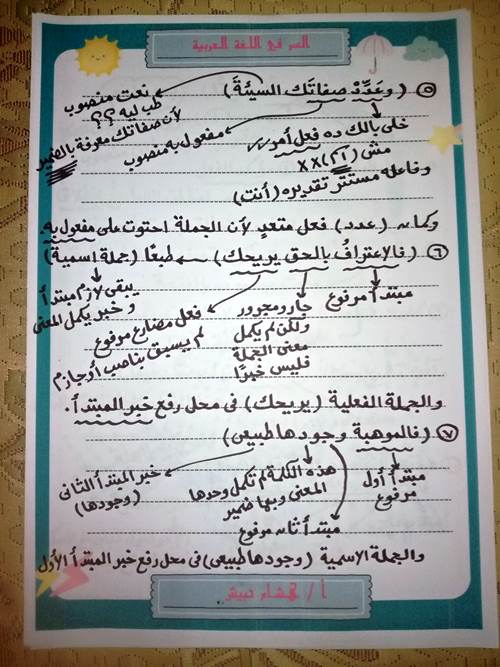 السر في اللغة العربية
٥ (وعَدِّدْ صفاتَك السيئةَ)
نعت منصوب
طب ليه ؟؟
لأن صفاتك معرفة بالضمير
مفعول به منصوب
خلى بالك ده فعل أمر
مش (اسم) XX
وفاعله مستتر تقديره (أنت)
وكمان (عدد) فعل متعدٍ لأن الجملة احتوت على مفعول به.
٦ (فالاعترافُ بالحق يريحك) ← طبعًا (جملة اسمية)
يبقى لازم مبتدأ
و خبر يكمل المعنى
مبتدأ مرفوع
جار ومجرور
ولكن لم يكمل
معنى الجملة
فليس خبرًا
فعل مضارع مرفوع
لم يسبق بناصب أو جازم
والجملة الفعلية (يريحك) فى محل رفع خبر المبتدأ.
٧ (فالموهبة وجودها طبيعى)
مبتدأ أول
مرفوع
هذه الكلمة لم تكمل وحدها
المعنى وبها ضمير
مبتدأ ثان مرفوع
خبر المبتدأ الثانى
(وجودها)
والجملة الاسمية (وجودها طبيعى) فى محل رفع خبر المبتدأ الأول
أ / هشام حبيش